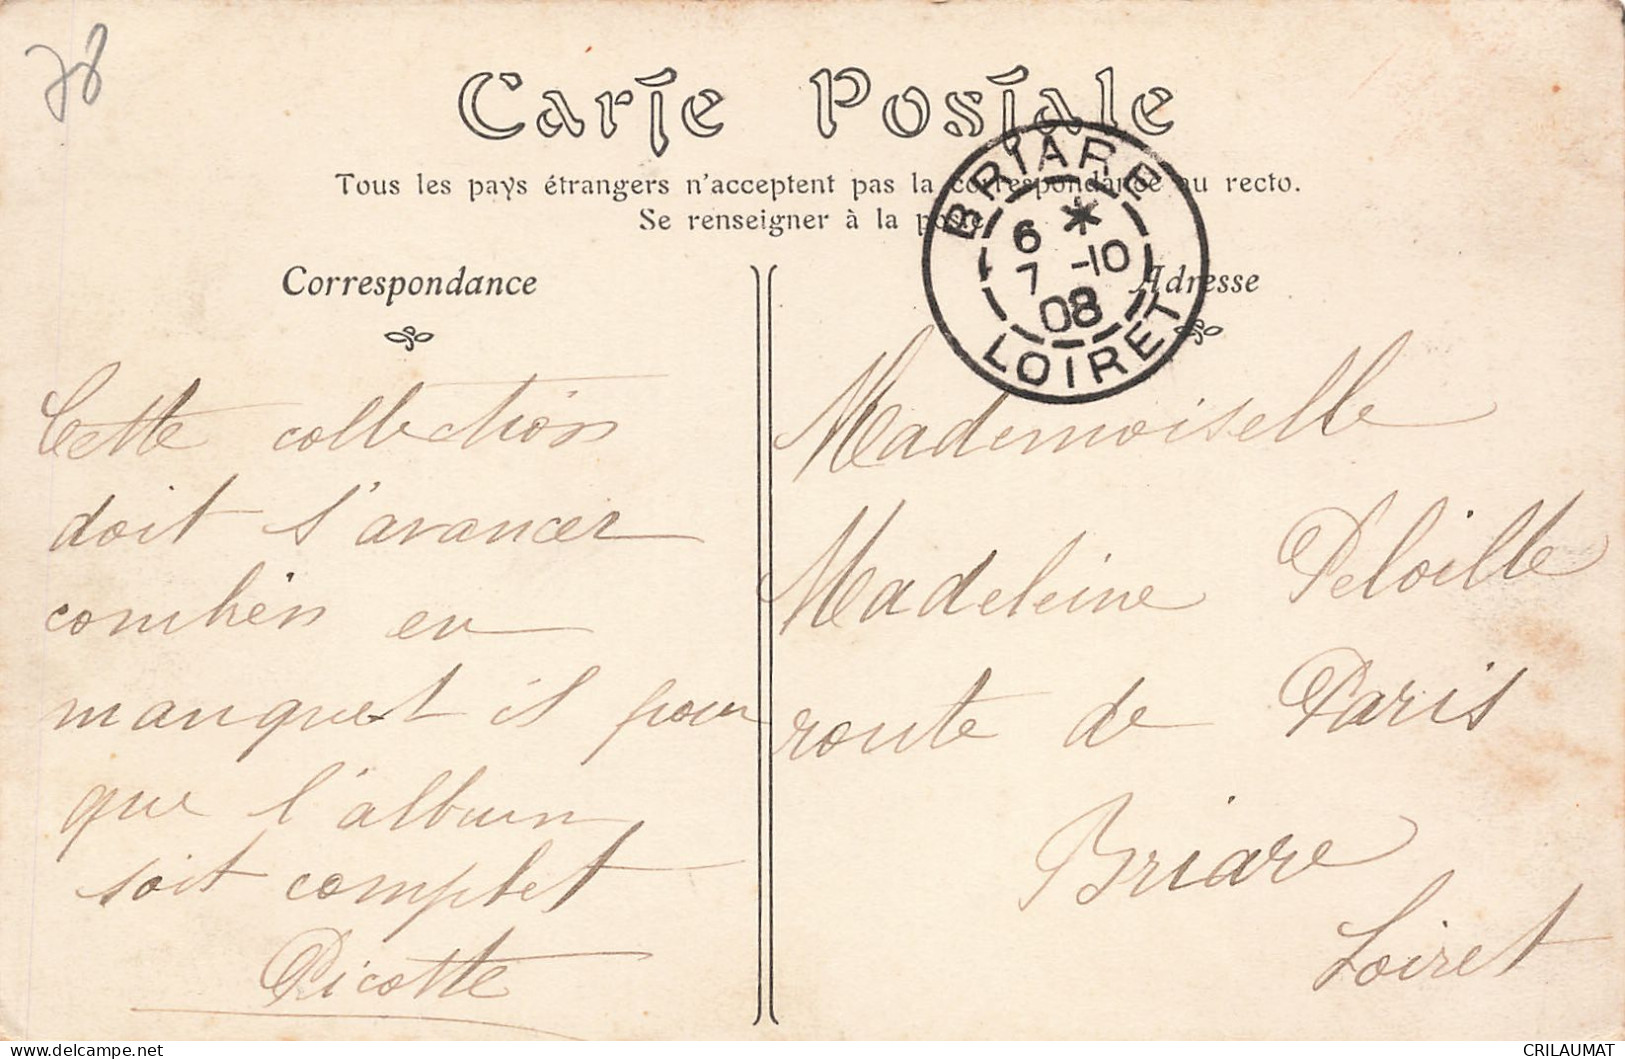 78
Carte Postale
Tous les pays étrangers n'acceptent pas la correspondance au recto.
Se renseigner à la poste
BRIARE
6 *
7 -10
08
LOIRET
Correspondance
Adresse
Cette collection
doit s'avancer
combien en
manquest il pour
que l'album
soit complet
Picotte
Mademoiselle
Madeleine Peloille
route de Paris
Briare
Loiret
CRILAUMAT